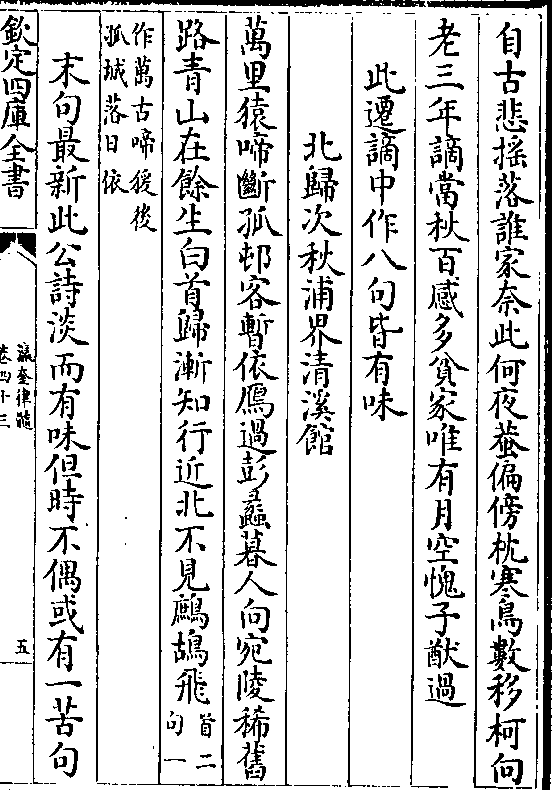 自古悲搖落誰家奈此何夜蛩偏傍枕寒鳥數移柯向
老三年謫當秋百感多貧家唯有月空愧子猷過
此遷謫中作八句皆有味
北歸次秋浦界清溪館
萬里猿啼斷孤邨客暫依鴈過彭蠡暮人向宛陵稀舊
路青山在餘生白首歸漸知行近北不見鷓鴣飛首二句一
作萬古啼猨後
孤城落日依
末句最新此公詩淡而有味但時不偶或有一苦句
欽定四庫全書
瀛奎律髓
卷四十三
五